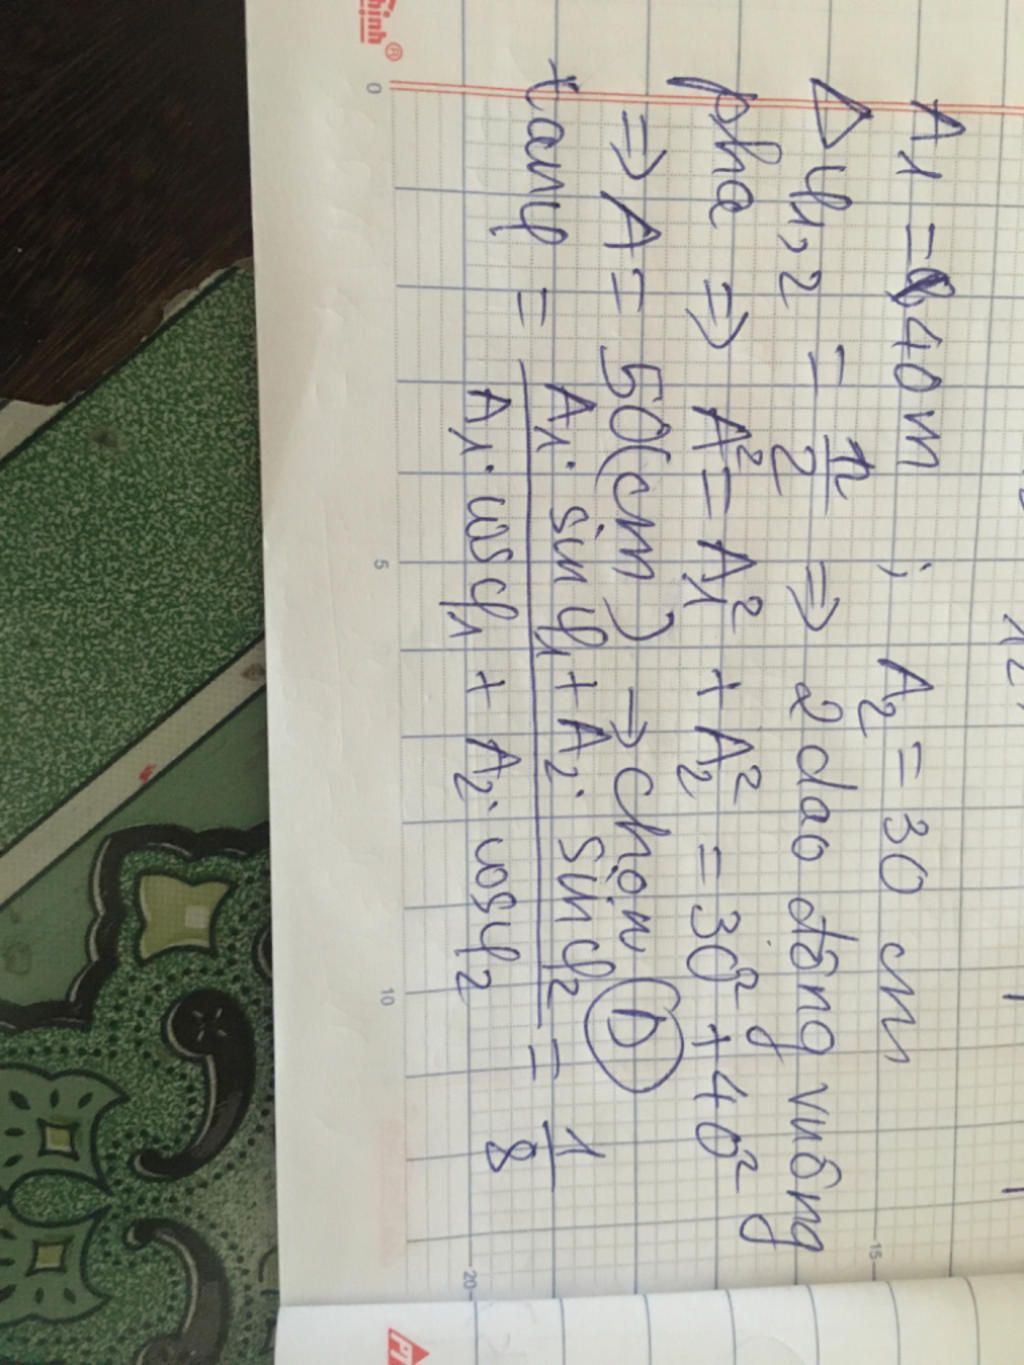 A1 = 40m ; A2 = 30 cm
Δφ1,2 = π/2 ⇒ 2 dao động vuông
pha ⇒ A² = A1² + A2² = 30² + 40²
⇒ A = 50(cm) → chọn D
tanφ = (A1. sinφ1 + A2. sinφ2) / (A1. cosφ1 + A2. cosφ2) = 1/8
0
5
10
15
20